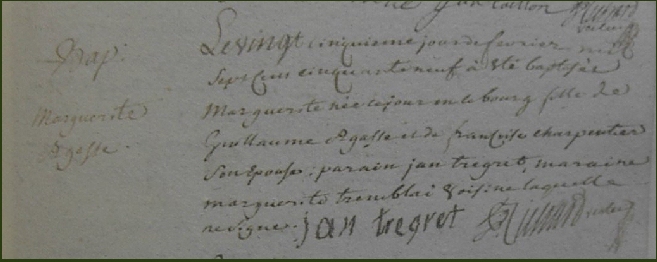 Bap.
Marguerite
Le vingt cinquieme jour de fevrier mil
sept cens cinquante neuf à été baptisée
Marguerite née ce jour en ce bourg fille de
Guillaume et de françoise charpentier
son epouse: parain jan tregret, maraine
marguerite tremblai voisine laquelle
ne signe.
jan tregret